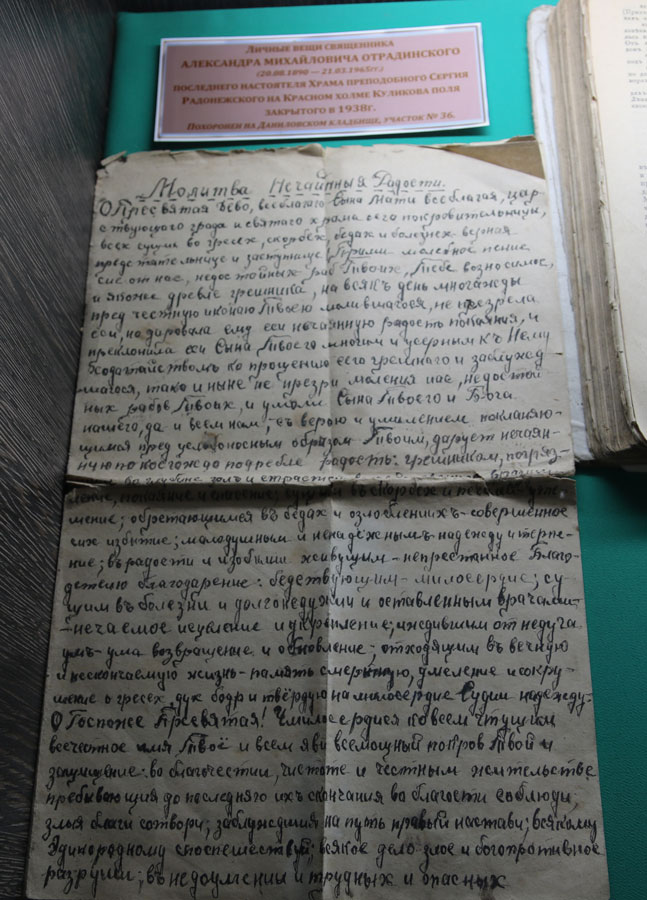 Личные вещи священника
Александра Михайловича Отрадинского
(20.08.1890 — 21.03.1965гг.)
последнего настоятеля Храма преподобного Сергия
Радонежского на Красном холме Куликова поля
закрытого в 1938г.
Похоронен на Даниловском кладбище, участок № 36.
Молитва Нечайныя Радости.
О Пресвятая Дево, всеблагаго Сына Мати всеблагая, цар-
ствующаго града и святаго храма сего покровительнице,
всех сущих во гресех, скорбех, бедах и болезнех верная
предстательнице и заступнице! Приими молебное пение
сие от нас, недостойных раб Твоих, Тебе возносимое,
и якоже древле грешника, на всякъ день многажды
пред честною иконою Твоею молившагося, не презрела
еси, но даровала ему еси нечаянную радость покаяния, и
преклонила еси Сына Твоего многим и усерным къ Нему
ходатайствомъ ко прощению сего грешнаго и заблужд
шагося, тако и ныне не презри моления нас, недостой
ных рабов Твоих, и умоли Сына Твоего и Бога
нашего, да и всем нам съ верою и умилением покланяю-
щимся пред целбоносным образом Твоим, дарует нечаян-
ную по коегождо потребле радость: грешником, погряз-
ление, покаяние и спасение; сущим въ скорбех и печалех
мение; обретающимся въ бедах и озлоблениихъ - совершенное
сих избытие; малодушным и ненадежнымъ - надежду и терпе-
ние; въ радости и изобилии живущим - непрестанное Благо-
детелю благодарение: бедствующим - милосердие; су-
щим въ болезни и долгонедужии и оставленным врачами
- нечаемое исцеление и укрепление; ждившим от недуга
умъ - ума возвращение и обновление; отходящим въ вечную
и нескончаемую жизнь - память смертную, умеление и сокру-
шение о гресех, дух бодр и твердую на милосердие Судии надежду.
О Госпоже Пресвятая! Умилосердися ко всем чтущим
всечестное имя Твоё и всем яви всемощный покров Твой и
защищение: во благочестии, чистоте и честным жительстве
пребывающия до последняго ихъ скончания во благости соблюди,
злыя благи сотвори; заблуждшия на путь правый настави; всякому
споспешествуй; всякое дело злое и богопротивное
разруши; въ недоумении и трудных и опасных